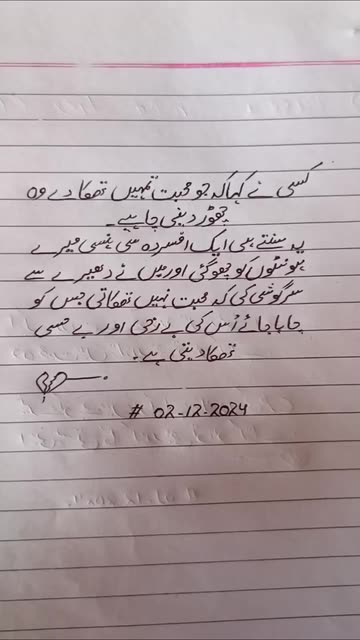 کسی نے کہا کہ جو محبت تمہیں تھکا دے وہ
چھوڑ دینی چاہیے۔
یہ سنتے ہی ایک افسردہ سی ہنسی میرے
ہونٹوں کو چھو گئی اور میں نے دھیرے سے
سرگوشی کی کہ محبت نہیں تھکاتی جس کو
چاہا جائے اُس کی بے رخی اور بے حسی
تھکا دیتی ہے۔
# 02-12-2024